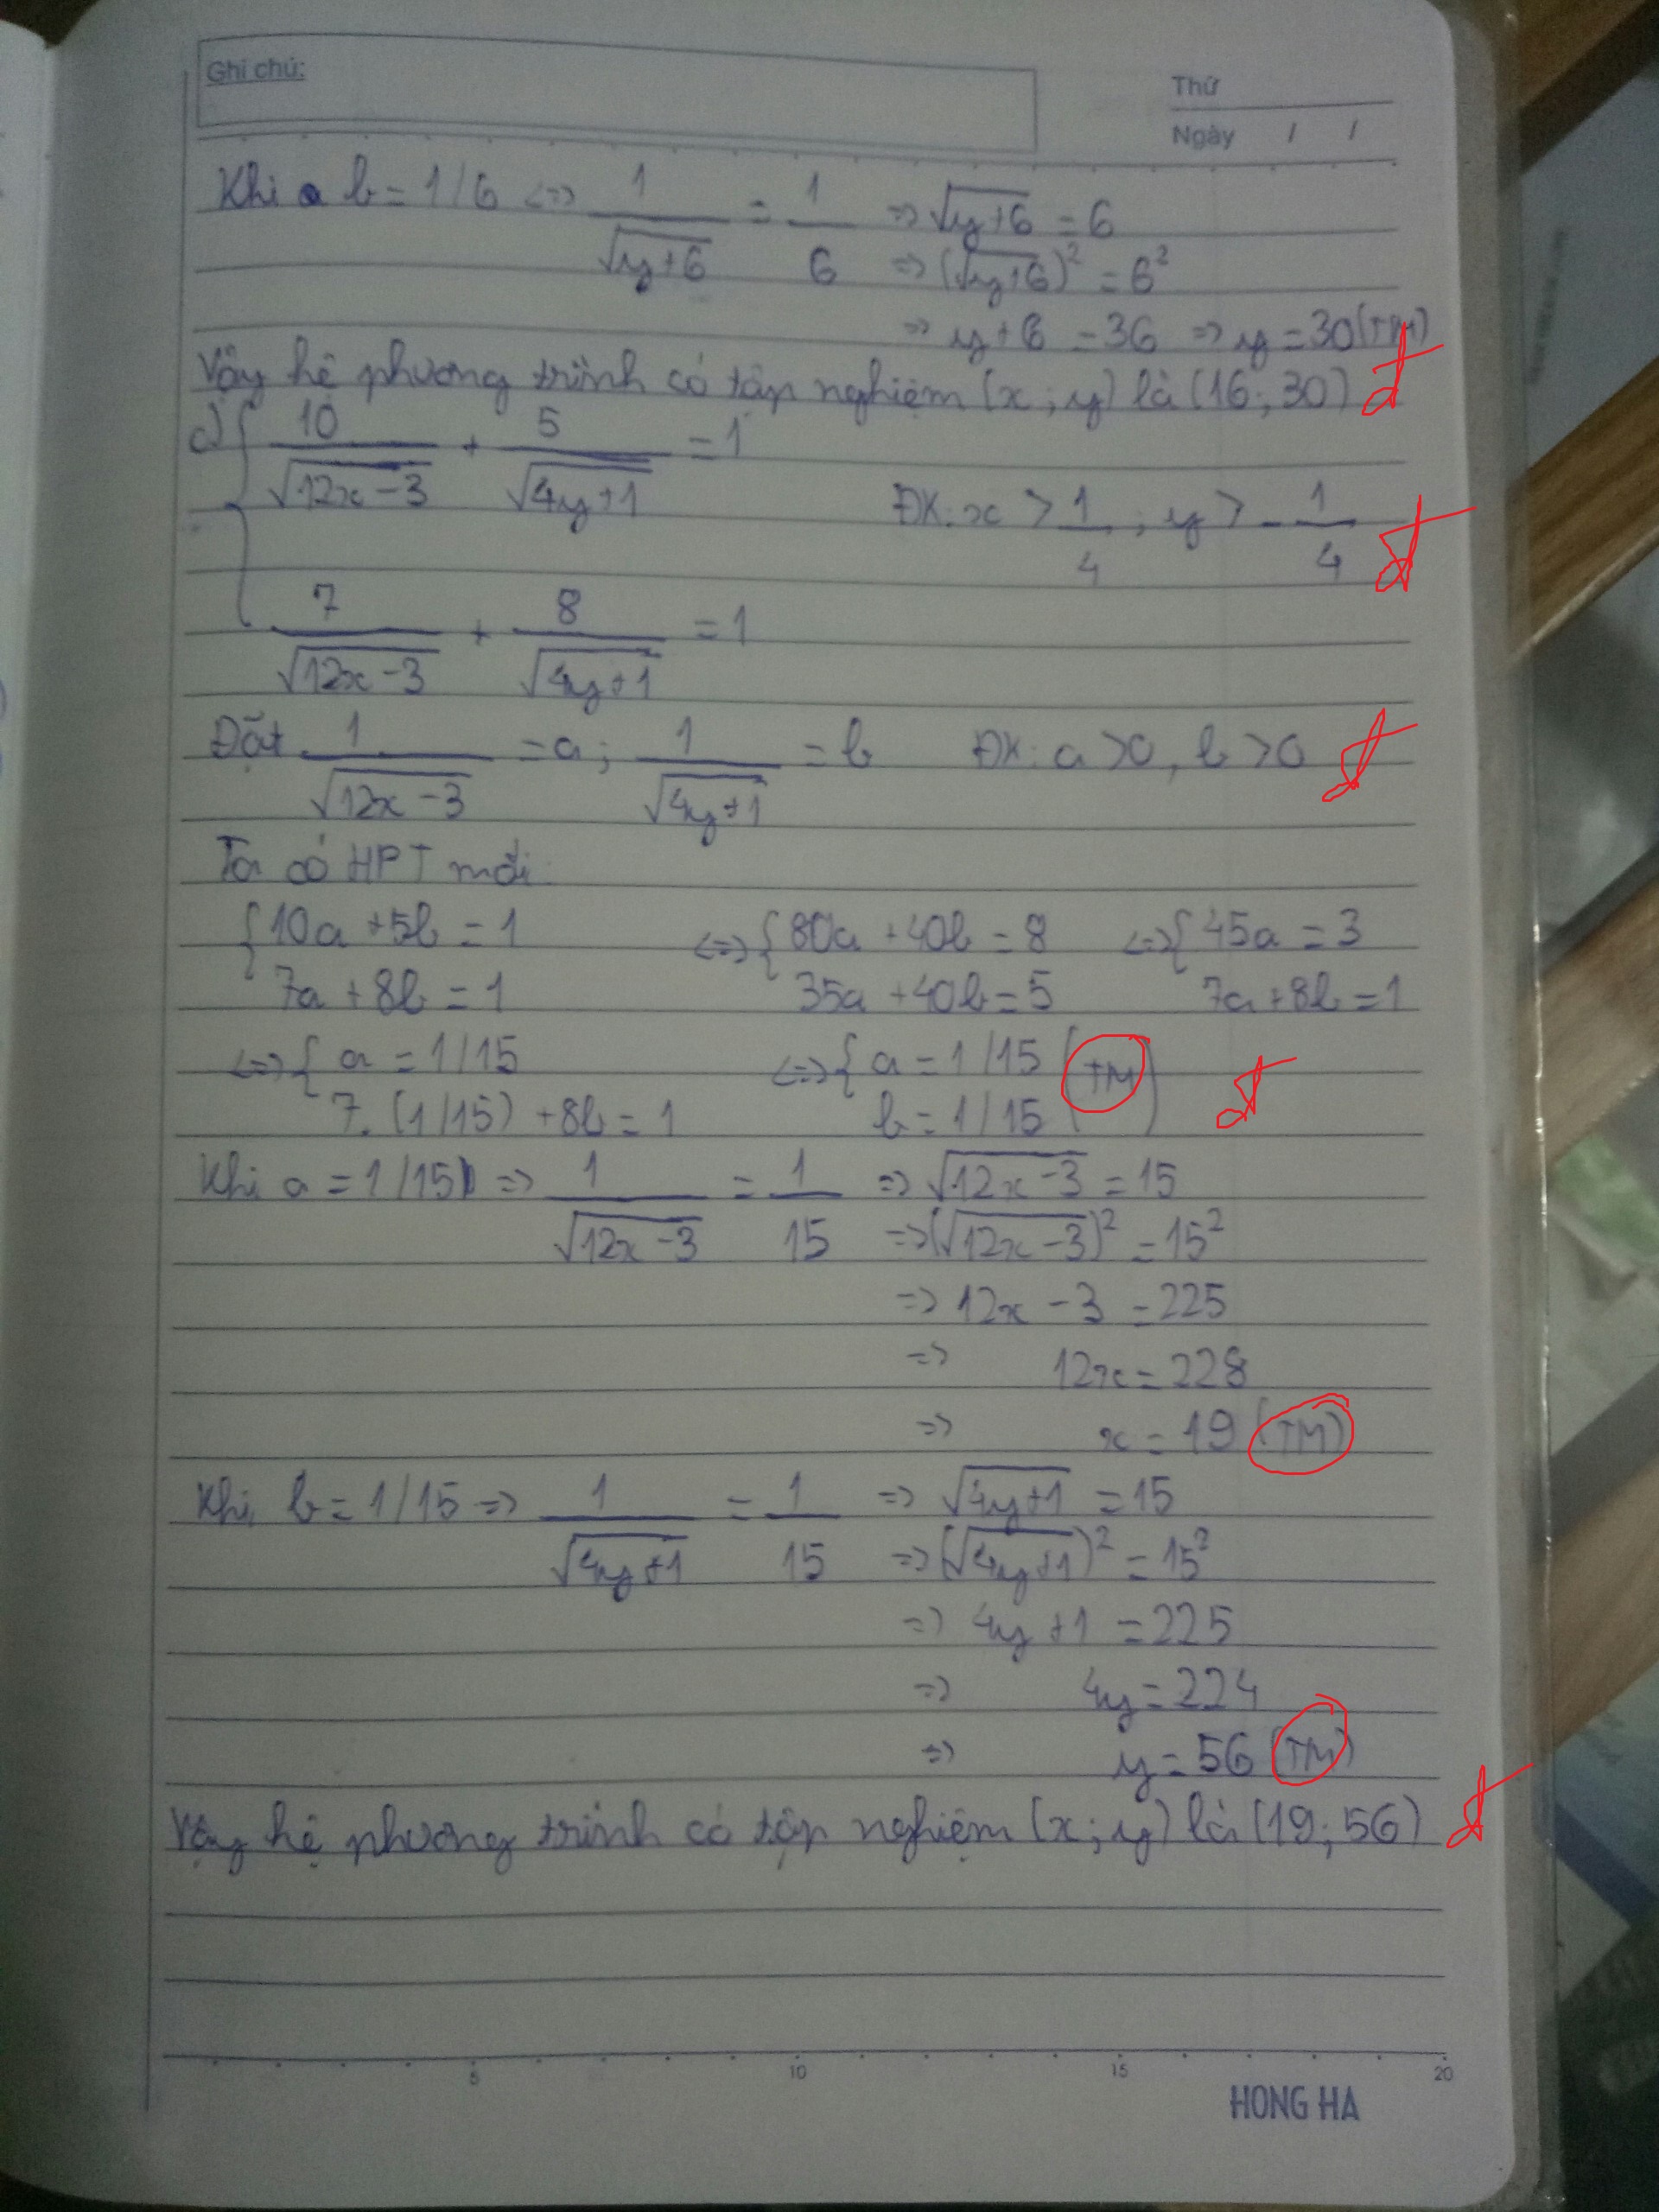 Ghi chú:
Thứ
Ngày / /
Khi b = 1/6 <=> 1/√(y+6) = 1/6 => √(y+6) = 6
=> (√(y+6))² = 6²
=> y + 6 = 36 => y = 30 (TM)
Vậy hệ phương trình có tập nghiệm (x; y) là (16; 30) đ
c) { 10/√(12x-3) + 5/√(4y+1) = 1
ĐK: x > 1/4 ; y > -1/4 đ
7/√(12x-3) + 8/√(4y+1) = 1
Đặt 1/√(12x-3) = a; 1/√(4y+1) = b ĐK: a > 0, b > 0 đ
Ta có HPT mới
{ 10a + 5b = 1 <=> { 80a + 40b = 8 <=> { 45a = 3
7a + 8b = 1 35a + 40b = 5 7a + 8b = 1
<=> { a = 1/15 <=> { a = 1/15 (TM) đ
7. (1/15) + 8b = 1 b = 1/15
Khi a = 1/15 => 1/√(12x-3) = 1/15 => √(12x-3) = 15
=> (√(12x-3))² = 15²
=> 12x - 3 = 225
=> 12x = 228
=> x = 19 (TM)
Khi b = 1/15 => 1/√(4y+1) = 1/15 => √(4y+1) = 15
=> (√(4y+1))² = 15²
=> 4y + 1 = 225
=> 4y = 224
=> y = 56 (TM)
Vậy hệ phương trình có tập nghiệm (x; y) là (19; 56) đ
5 10 15 20
HONG HA